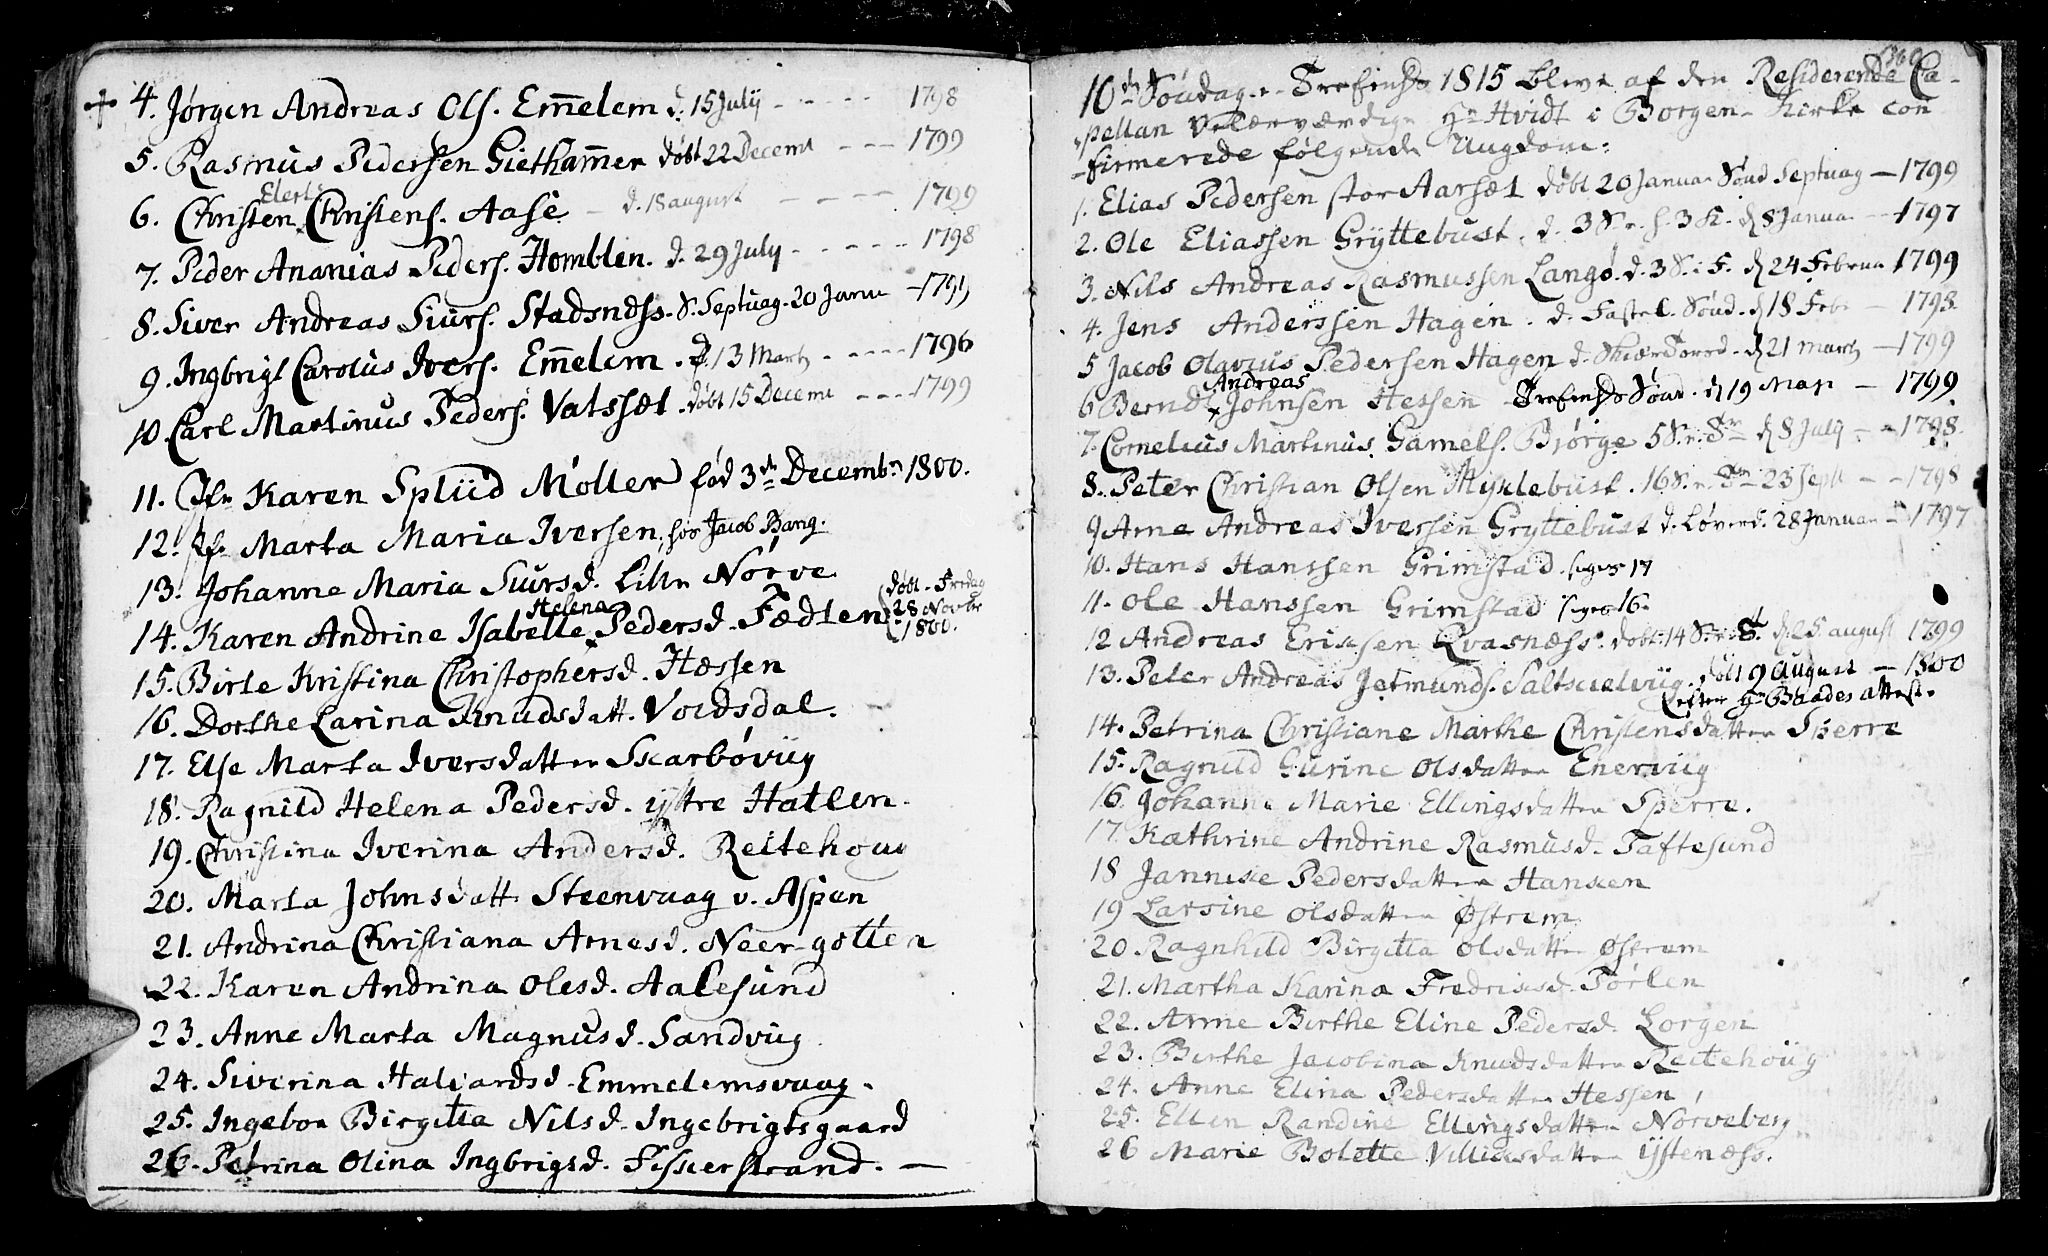 + 4. Jørgen Andreas Ols. Em̅elem d. 15 July - - - - - 1798
5. Rasmus Pedersen Gietham̅er døbt 22 Decemt - - - 1799
Elert
6. Christen Christens. Aase - d. 18 august - - - - 1799
7. Peder Ananias Peders. Homblen. d. 29 July - - - - - - 1798
8. Siver Andreas Siurs. Stadsnæss. S. Septuag. 20 Janu - 1799
9. Ingbrigt Carolus Ivers. Em̅elem. d. 13 Marty - - - - - 1796
10. Carl Martinus Peders. Vatssæt. døbt 15 Decem - - - 1799
11. Jfr Karen Spliid Møller fød 3de Decembr 1800.
12. Marta Maria Iversen, hos Jacob Bang.
13. Johanne Maria Siursd. Lille Nørve
Helena
14. Karen Andrine Isabelle Pedersd. Fædlen døbt Fredag 28 Novbr 1800.
15. Birte Kristina Christophersd. Hæssen
16. Dorthe Larina Knudsdatt. Voldsdal.
17. Else Marta Iversdatter Skarbøviig
18. Ragnild Helena Pedersd. ijttre Hatlen.
19. Christina Iverina Andersd. Reitehoug
20. Marta Johnsdatt Steenvaag v. Aspen
21. Andrina Christiana Arnesd. Neer-gotten
22. Karen Andrina Olesd. Aalesund
23. Anne Marta Magnusd. Sandviig
24. Siverina Halvardsd. Emmelemsvaag.
25. Ingebor Birgitta Nilsd. Ingebrigtsgaard
26. Petrina Olina Ingbrigsd. Fiskerstrand. —
360
10de Søndag e. Trefoinsd 1815 bleve af den Residerende Ca-
pellan Velærværdige Hr Hvidt i Borgen- Kirke con
-firmerede følgende Ungdom:
1. Elias Pedersen stor Aarsæt døbt 20 Januar Sønd Septuag — 1799
2. Ole Eliassen Gryttebust. d. 3 S. e. h. 3 K. d 8 Janua - - 1797
3. Nils Andreas Rasmussen Langø. d. 3 S. i F. d 24 Februa 1799
4. Jens Anderssen Hagen. d. Fastel. Sønd. d 18 Feb - 1798
5 Jacob Olavius Pedersen Hagen d. Skiærtorsd. d 21 marty — 1799
Andreas
6 Berndt Johnsen Hessen Trefoinsds Sønd. d 19 Maji — 1799.
7. Cornelius Martinus Gamels. Bjørge 5 S. e. Tr d 8 July - - 1798.
8. Peter Christian Olsen Myklebust. 16 S. e. Tr 23 Sept - - 1798
9 Arne Andreas Iversen Gryttebust d. Løverd. 28 Januar - 1797
10. Hans Hanssen Grimstad. siger 17
11. Ole Hanssen Grimstad siger 16.
12 Andreas Eriksen Kvasnæss. døbt 14 S. e. T. d 25 august 1799
13. Peter Andreas Jetmunds. Saltkielviig. døbt 9 august — 1800
efter Hr Baades attest.
14. Petrina Christiane Marthe Christensdatter Sperre
15. Ragnild Gurine Olsdatter Enerviig
16 Johanne Marie Ellingsdatter Sperre.
17. Kathrine Andrine Rasmusd. Taftesund
18 Jannike Pedersdatter Hanken
19 Larsine Olsdatter Østrem
20 Ragnhild Birgitta Olsdatter Østrem
21. Martha Karina Fredriksd. Tørlen
22. Anne Birthe Eline Pedersd. Lorgen
23. Birthe Jacobina Knudsdatter Reitehoug
24. Anne Elina Pedersdatter Hessen
25. Ellen Randine Ellingsdatter Norveberg
26 Marie Bolette Villiksdatter ijstenæss.